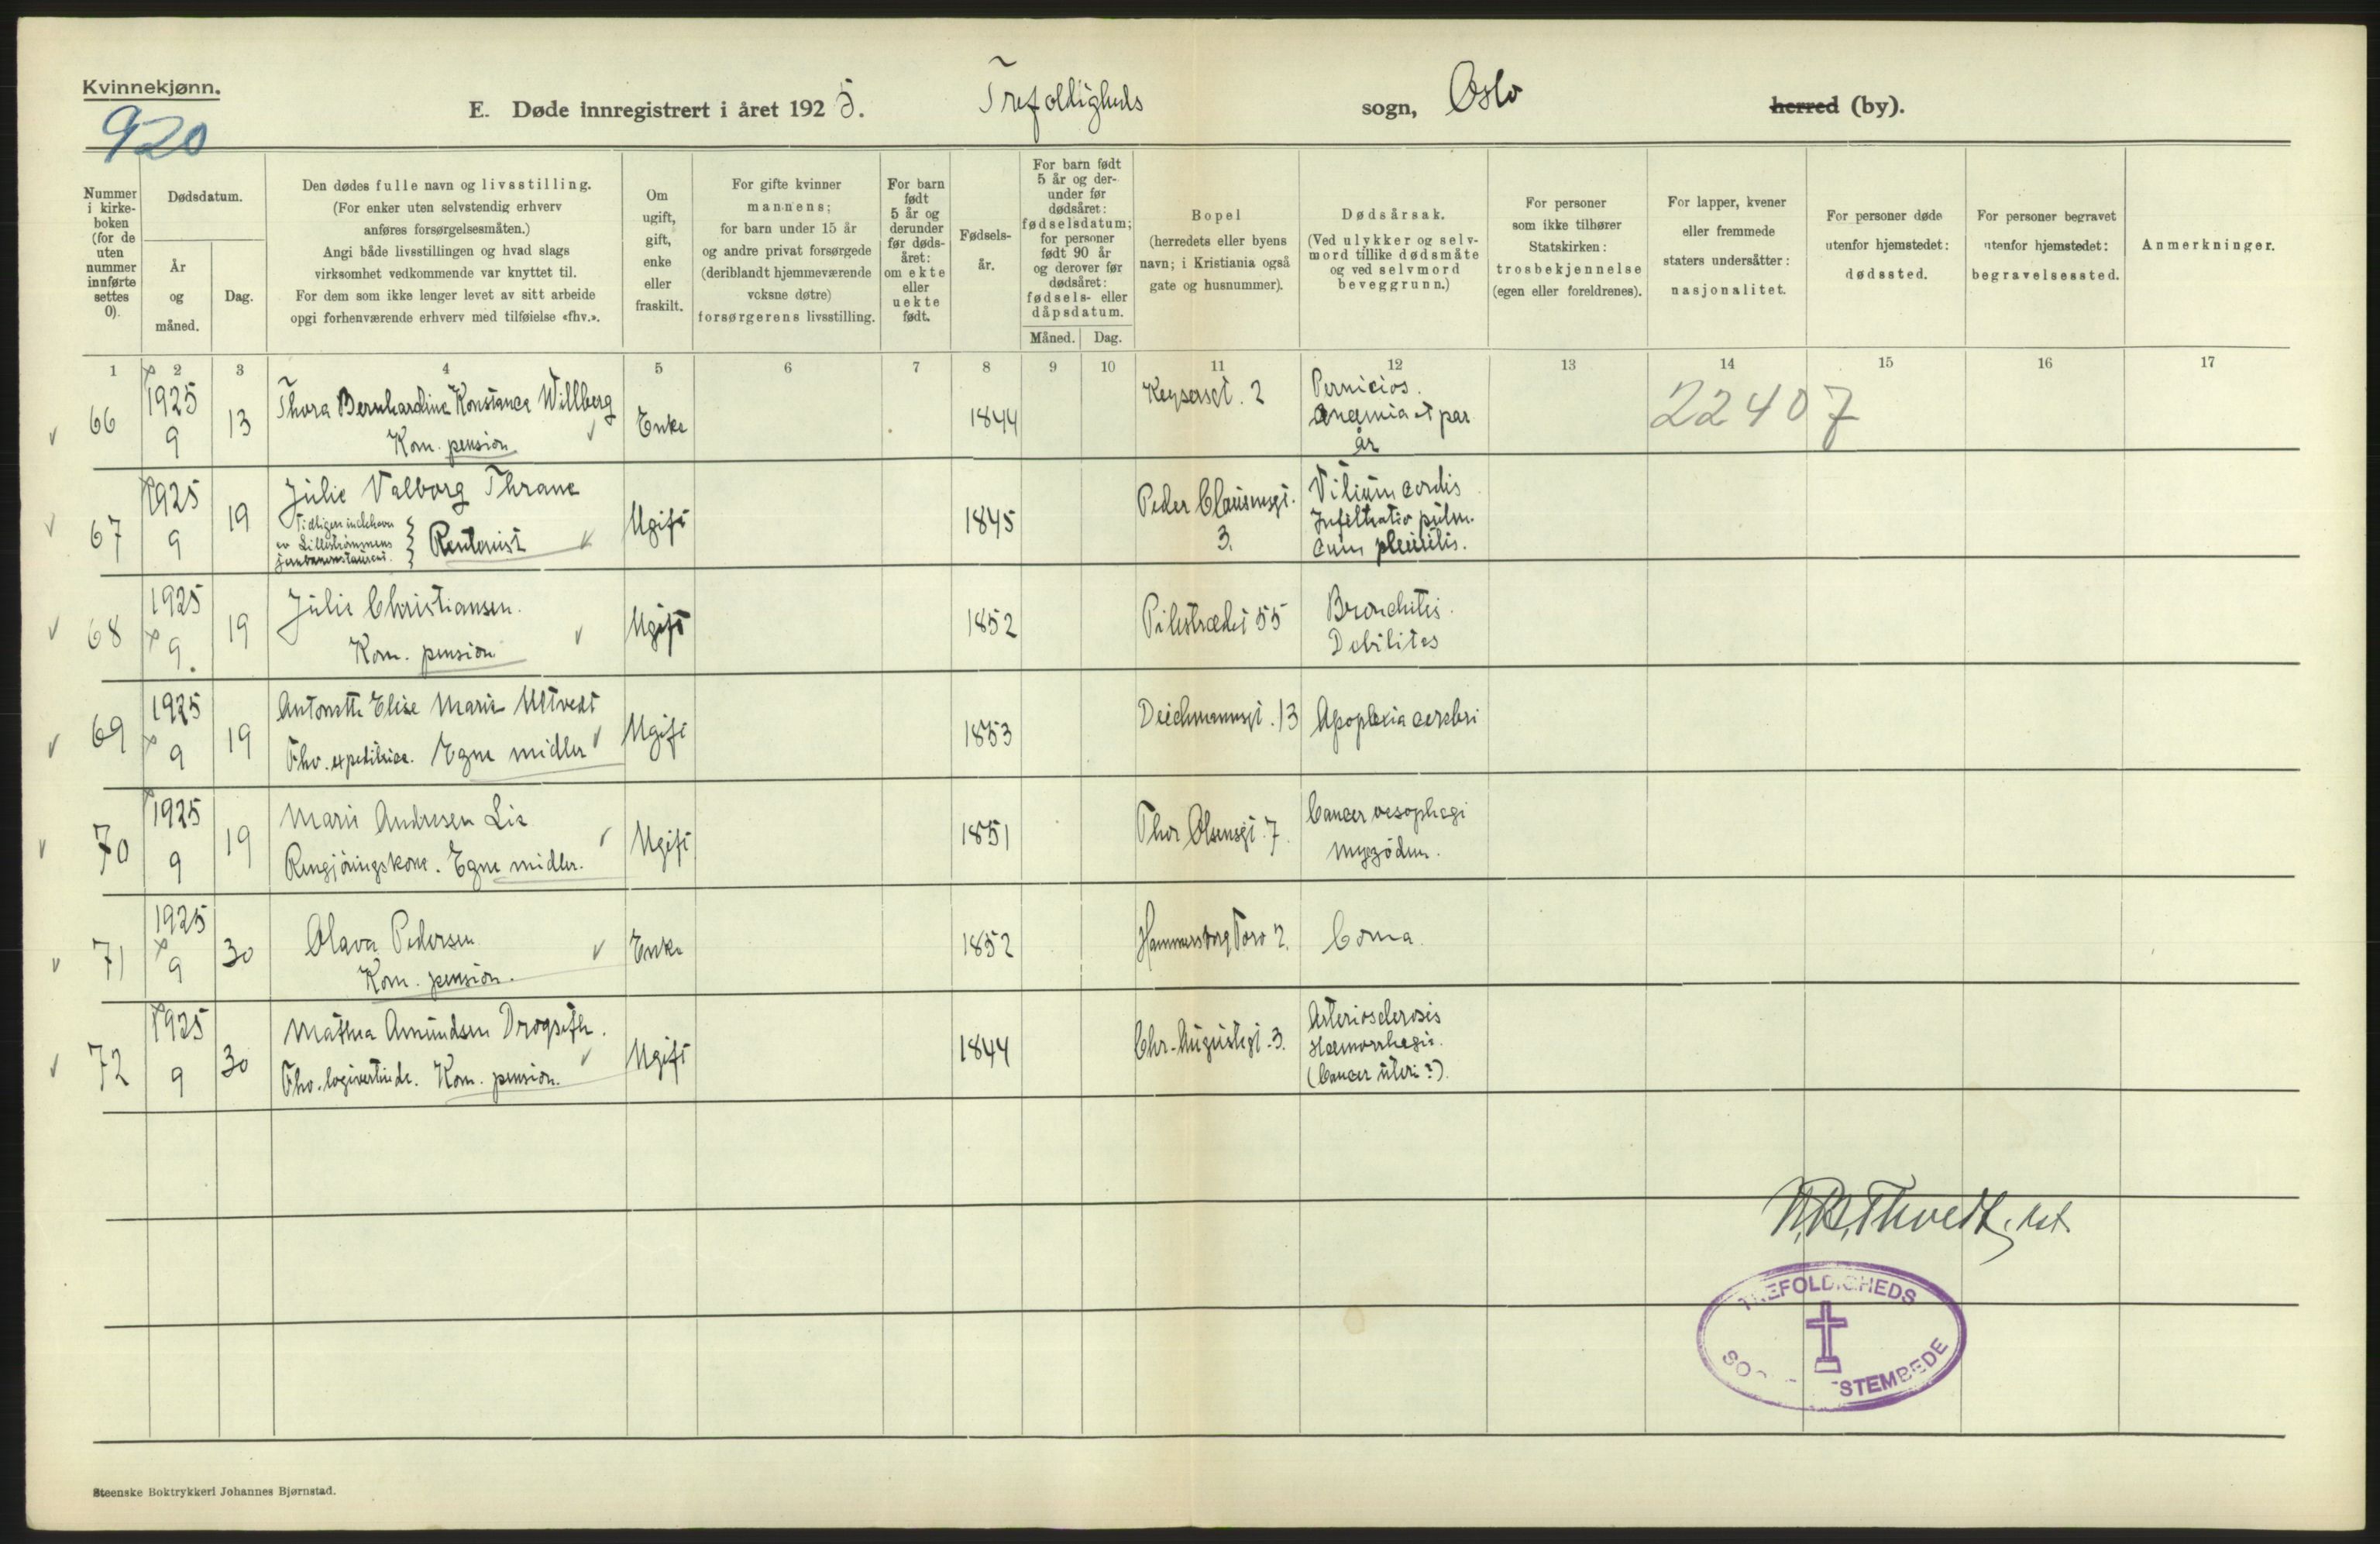 Kvinnekjønn.
920
E. Døde innregistrert i året 1925. Trefoldigheds sogn, Oslo herred (by).
Nummer i kirke-boken (for de uten nummer innførte settes 0).
Dødsdatum.
År og måned.
Dag.
Den dødes fulle navn og livsstilling.
(For enker uten selvstendig erhverv
anføres forsørgelsesmåten.)
Angi både livsstillingen og hvad slags
virksomhet vedkommende var knyttet til.
For dem som ikke lenger levet av sitt arbeide
opgi forhenværende erhverv med tilføielse «fhv.».
Om
ugift,
gift,
enke
eller
fraskilt.
For gifte kvinner
mannens;
for barn under 15 år
og andre privat forsørgede
(deriblandt hjemmeværende
voksne døtre)
forsørgerens livsstilling.
For barn
født
5 år og
derunder
før døds-
året:
om ekte
eller
uekte
født.
Fødsels-
år.
For barn født
5 år og der-
under før
dødsåret:
fødselsdatum;
for personer
født 90 år
og derover før
dødsåret:
fødsels- eller
dåpsdatum.
Måned. Dag.
Bopel
(herredets eller byens
navn; i Kristiania også
gate og husnummer).
Dødsårsak.
(Ved ulykker og selv-
mord tillike dødsmåte
og ved selvmord
beveggrunn.)
For personer
som ikke tilhører
Statskirken:
trosbekjennelse
(egen eller foreldrenes).
For lapper, kvener
eller fremmede
staters undersåtter:
nasjonalitet.
For personer døde
utenfor hjemstedet:
dødssted.
For personer begravet
utenfor hjemstedet:
begravelsessted.
Anmerkninger.
1 2 3 4 5 6 7 8 9 10 11 12 13 14 15 16 17
66 1925 9 13 Thora Bernhardine Konstance Willberg
Kom. pension
Enke 1844 Keysersgt. 2
Pernicios.
anæmia et par
år
22407
67 1925 9 19 Julie Valborg Thrane
Tidligere indehaver
av Lillestrømmens
jernbanerestaurant. Rentenist
Ugift 1845 Peder Claussønsgt.
3.
Vitium cordis
Infiltratio pulm.
cum pleuritis.
68 1925 9. 19 Julie Christiansen.
Kom. pension
Ugift 1852 Pilestrædet 55
Bronchitis.
Debilitas
69 1925 9 19 Antonette Elise Marie Ultvedt
Fhv. expeditrice. Egne midler
Ugift 1853 Deichmannsgt. 13 Apoplexia cerebri
70 1925 9 19 Marie Andresen Lie
Rengjøringskone. Egne midler.
Ugift 1851 Thor Olsensgt. 7
Cancer oesophagi
myxödem.
71 1925 9 30 Olava Pedersen
Kom. pension.
Enke 1852 Hammersborg Torv 2. Coma.
72 1925 9 30 Mathea Amundsen Drogseth.
Fhv. logivertinde. Kom. pension.
Ugift 1844 Chr. Augustsgt. 3.
Arteriosclerosis
Hæmorrhagia.
(Cancer uteri?).
TREFOLDIGHEDS
STEMBEDE
Steenske Boktrykkeri Johannes Bjørnstad.